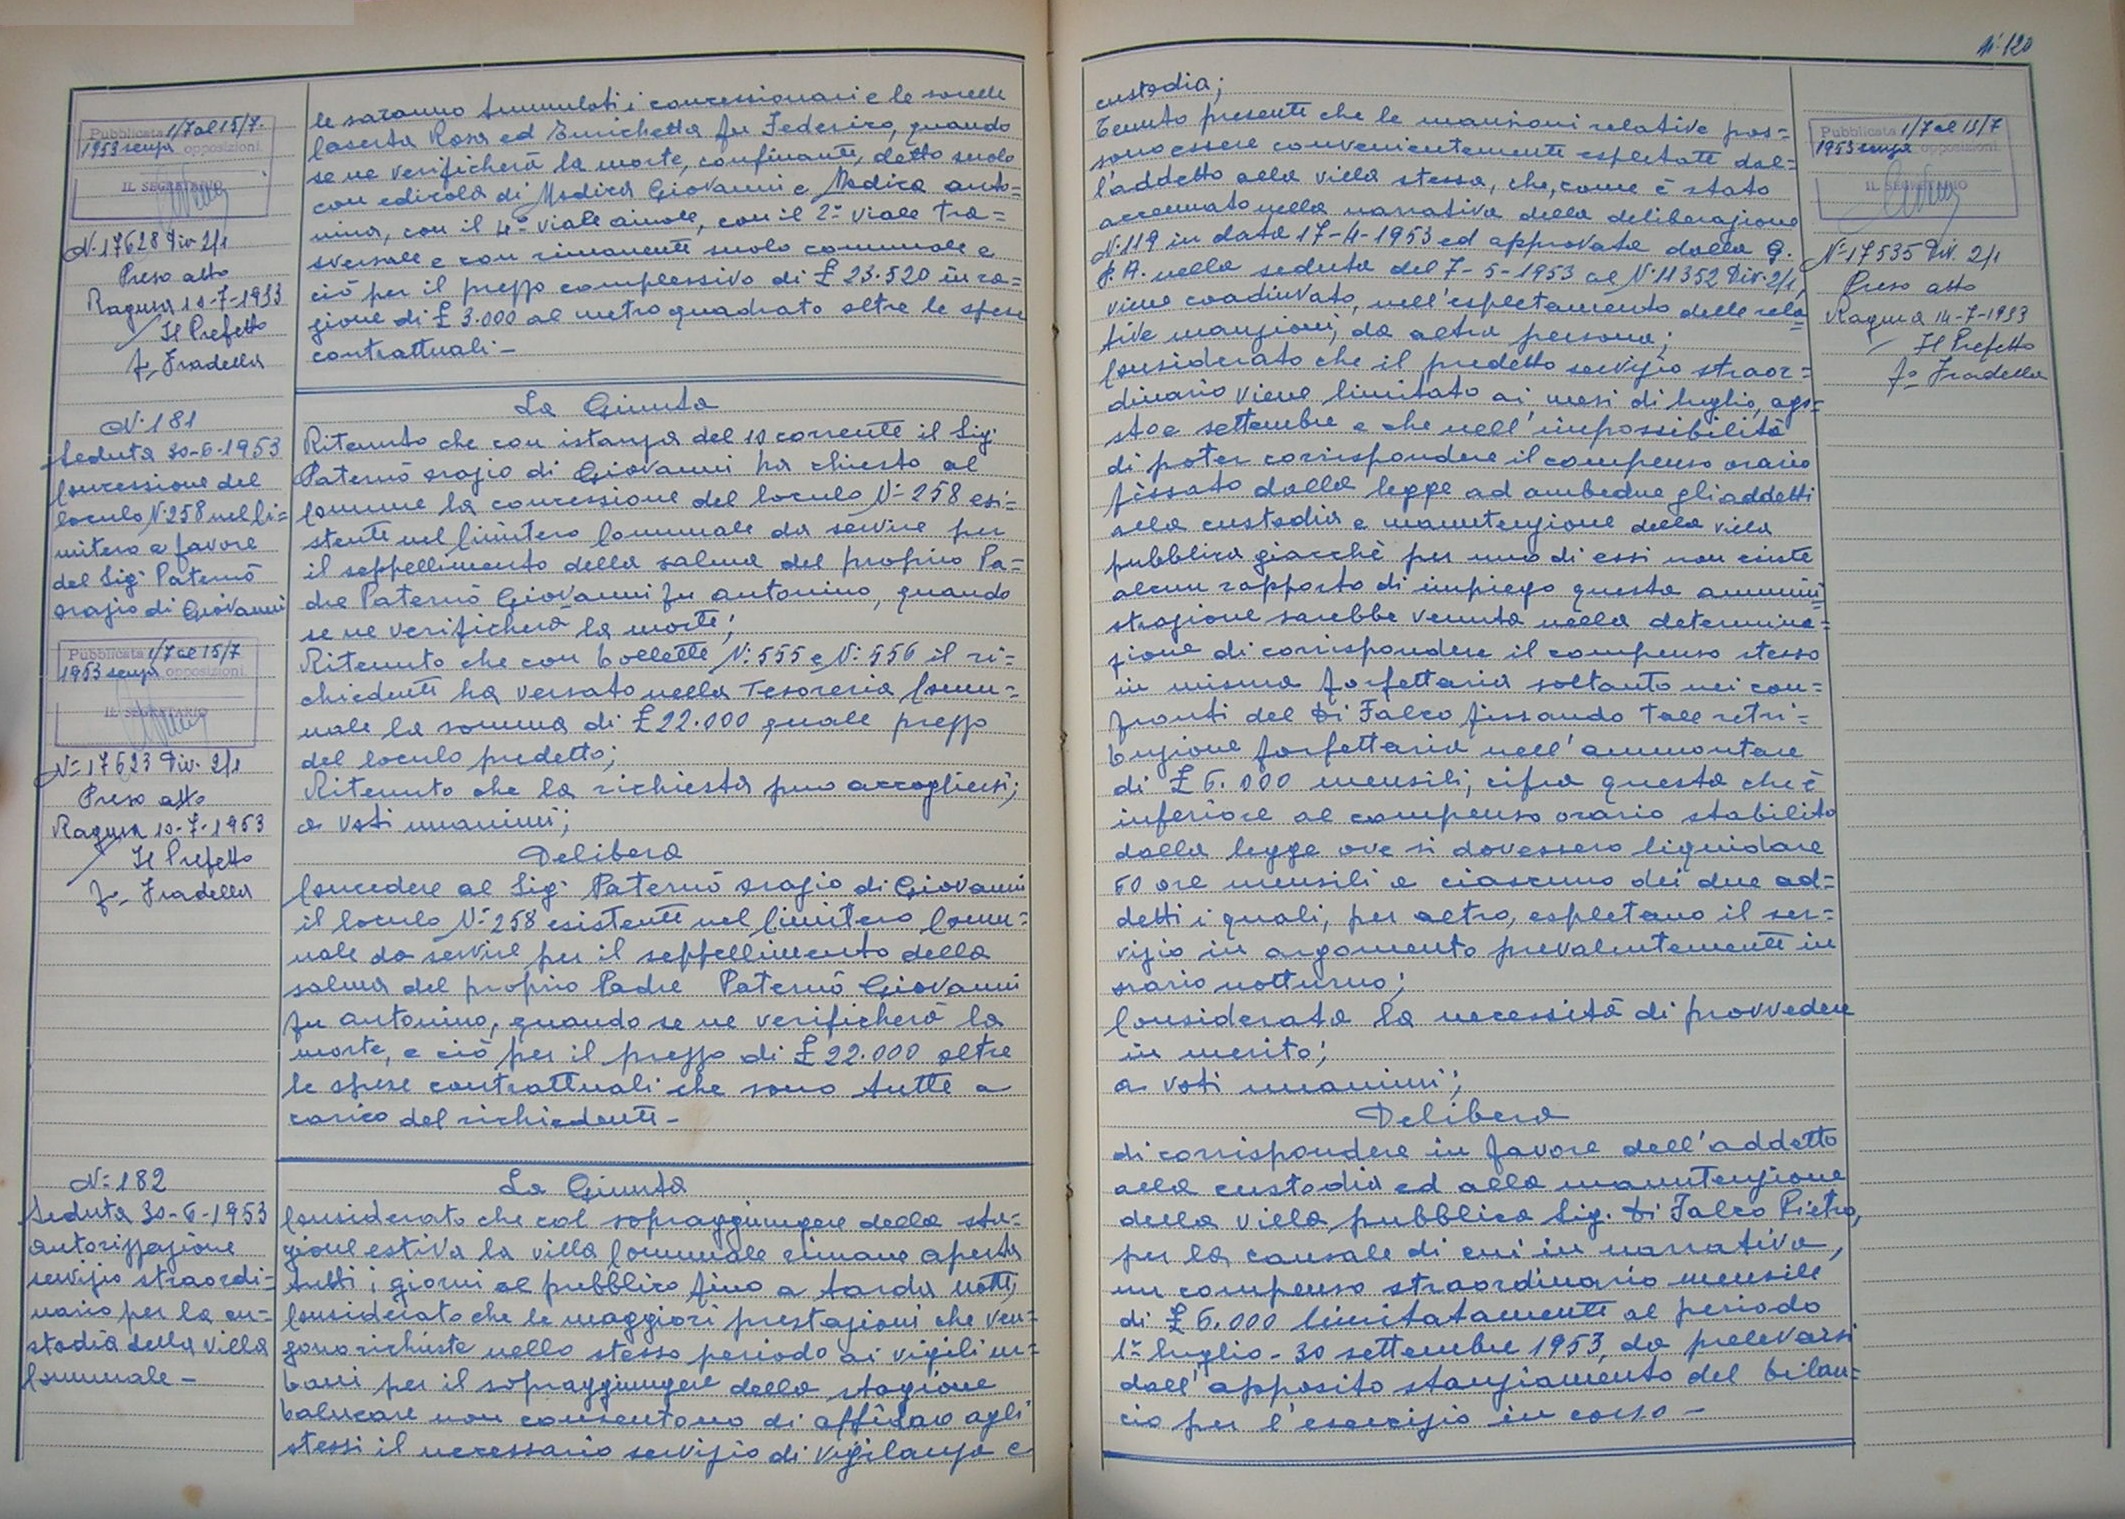 Pubblicata 1/7 al 15/7-
1953 senza opposizioni
IL SEGRETARIO
N. 17628 Div. 2/1
Preso atto
Ragusa 10-7-1953
Il Prefetto
f° Fradella
le saranno tumulati i concessionari e le sorelle
Caserta Rosa ed Enrichetta fu Federico, quando
se ne verificherà la morte, confinante, detto suolo
con edicola di Modica Giovanni e Modica Anto=
nina, con il 4° viale aiuole, con il 2° viale tra=
sversale e con rimanente suolo comunale e
ciò per il prezzo complessivo di £ 23.520 in ra=
gione di £ 3.000 al metro quadrato oltre le spese
contrattuali -
N. 181
Seduta 30-6-1953
Concessione del
loculo N. 258 nel Ci=
mitero a favore
del Sig. Paternò
Orazio di Giovanni
Pubblicata 1/7 al 15/7
1953 senza opposizioni
IL SEGRETARIO
N= 17623 Div. 2/1
Preso atto
Ragusa 10-7-1953
Il Prefetto
f° Fradella
La Giunta
Ritenuto che con istanza del 10 corrente il Sig.
Paternò Orazio di Giovanni ha chiesto al
Comune la concessione del loculo N= 258 esi=
stente nel Cimitero Comunale da servire per
il seppellimento della salma del proprio Pa=
dre Paternò Giovanni fu Antonino, quando
se ne verificherà la morte;
Ritenuto che con bollette N. 555 e N. 556 il ri=
chiedente ha versato nella Tesoreria Comu=
nale la somma di £ 22.000 quale prezzo
del loculo predetto;
Ritenuto che la richiesta può accogliersi;
a voti unanimi;
Delibera
Concedere al Sig. Paternò Orazio di Giovanni
il loculo N= 258 esistente nel Cimitero Comu=
nale da servire per il seppellimento della
salma del proprio Padre Paternò Giovanni
fu Antonino, quando se ne verificherà la
morte, e ciò per il prezzo di £ 22.000 oltre
le spese contrattuali che sono tutte a
carico del richiedente -
N= 182
Seduta 30-6-1953
Autorizzazione
servizio straordi=
nario per la cu=
stodia della villa
Comunale -
La Giunta
Considerato che col sopraggiungere della sta=
gione estiva la villa Comunale rimane aperta
tutti i giorni al pubblico fino a tarda notte;
Considerato che le maggiori prestazioni che ven=
gono richieste nello stesso periodo ai vigili ur=
bani per il sopraggiungere della stagione
balneare non consentono di affidare agli
stessi il necessario servizio di vigilanza e
N. 120
custodia;
Tenuto presente che le mansioni relative pos=
sono essere convenientemente espletate dal=
l'addetto alla villa stessa, che, come è stato
accennato nella narrativa della deliberazione
N. 119 in data 17-4-1953 ed approvata dalla G.
P. A. nella seduta del 7-5-1953 al N. 11352 Div. 2/1,
viene coadiuvato, nell'espletamento delle rela=
tive mansioni, da altra persona;
Considerato che il predetto servizio straor=
dinario viene limitato ai mesi di luglio, ago=
sto e settembre e che nell'impossibilità
di poter corrispondere il compenso orario
fissato dalla legge ad ambedue gli addetti
alla custodia e manutenzione della villa
pubblica giacchè per uno di essi non esiste
alcun rapporto di impiego questa ammini=
strazione sarebbe venuta nella determina=
zione di corrispondere il compenso stesso
in misura forfettaria soltanto nei con=
fronti del Di Falco fissando tale retri=
buzione forfettaria nell'ammontare
di £ 6.000 mensili, cifra questa che è
inferiore al compenso orario stabilito
dalla legge ove si dovessero liquidare
60 ore mensili a ciascuno dei due ad=
detti i quali, per altro, espletano il ser=
vizio in argomento prevalentemente in
orario notturno;
Considerata la necessità di provvedere
in merito;
a voti unanimi;
Delibera
di corrispondere in favore dell'addetto
alla custodia ed alla manutenzione
della villa pubblica Sig. Di Falco Pietro,
per la causale di cui in narrativa,
un compenso straordinario mensile
di £ 6.000 limitatamente al periodo
1° luglio - 30 settembre 1953, da prelevarsi
dall'apposito stanziamento del bilan=
cio per l'esercizio in corso -
Pubblicata 1/7 al 15/7
1953 senza opposizioni
IL SEGRETARIO
N= 17535 Div. 2/1
Preso atto
Ragusa 14-7-1953
Il Prefetto
f° Fradella